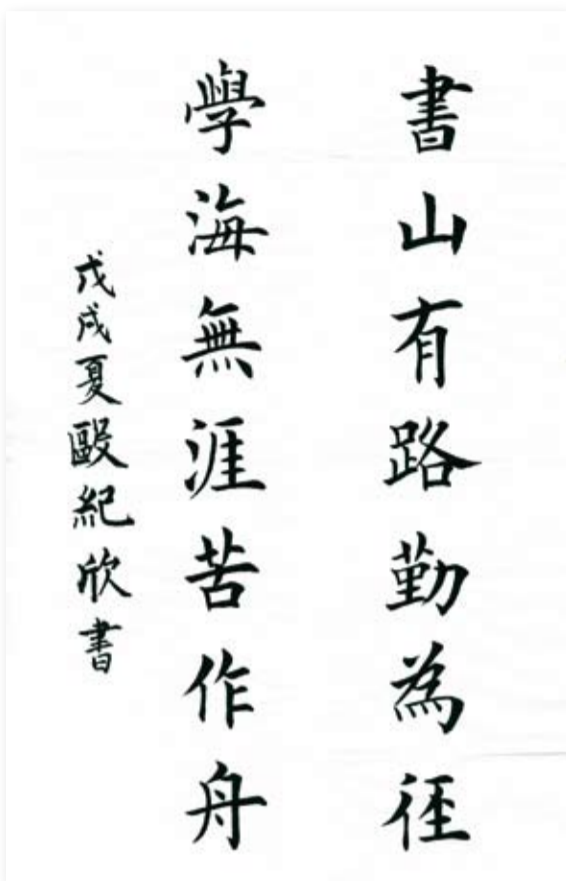 書山有路勤為徑
學海無涯苦作舟
戊戌夏毆紀欣書